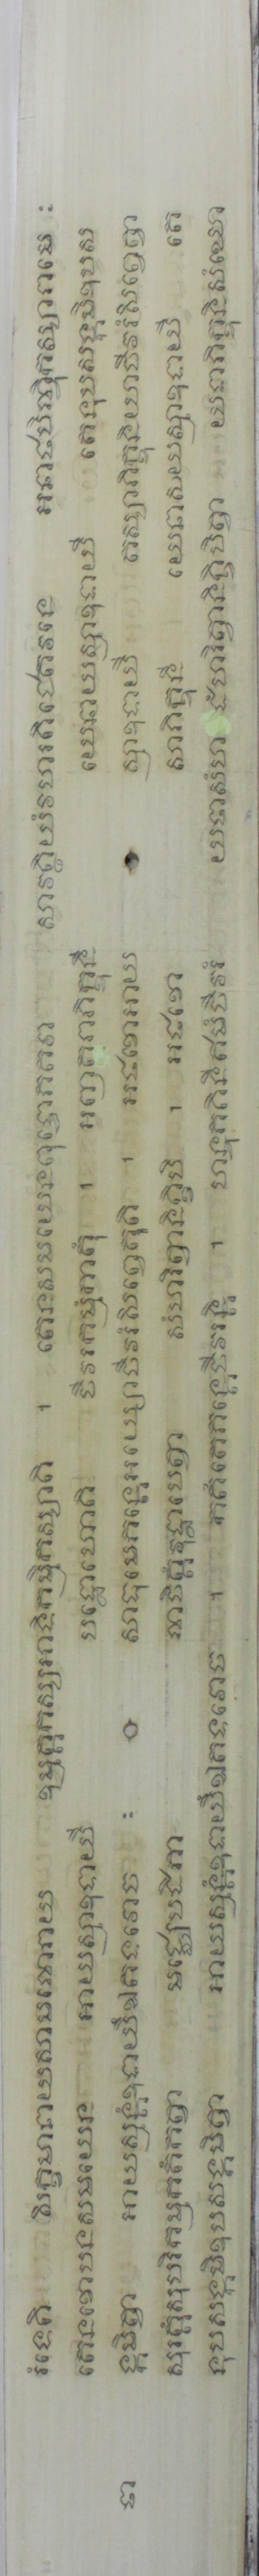 រំទេតិ សិក្ខមានាយសាមណេរាយ ឧម្មត្តកស្សអាទិកម្មិកស្សាតិ ។ តេនសមយេនពុទ្ធោភគវា សាវត្ថិយំវិហរតិជេតវនេ អនាថបិណ្ឌិកស្សារាមេ ៈ
តេនខោបនសមយេន អាយស្មាឧទាយី បដ្ឋោហោតិ ចីវរកម្មំកាតុំ ។ អញ្ញតរាភិក្ខុនី យេនាយស្មាឧទាយី តេនុបសង្កមិឧបស
ធា
ង្កមិត្វា អាយស្មន្តំឧទាយឹឯតទវោច ៈ សាធុមេភន្តេអយ្យោចីវរំសិព្វេតូតិ ។ អថខោអាយ ស្មាឧទាយី តស្សាភិក្ខុនិយាចីវរំសិព្វេត្វា
សុរត្តំសុបរិកម្មកតំកត្វា មជ្ឈេបដិភា ណចិត្តំវុដ្ឋាបេត្វា សំហរិត្វានិក្ខិបិ ។ អថខោ សាភិក្ខុនី យេនាយស្មាឧទាយី តេ
នុបសង្កមិឧបសង្កមិត្វា អាយស្មន្តំឧទាយឹឯតទវោច ។ កតំតេភន្តេចីវរន្តិ ។ ហន្ទភគិនីឥមំចីវរំ យថាសំហ ដំហរិត្វានិក្ខិបិត្វា យទាភិក្ខុនិសំឃោ